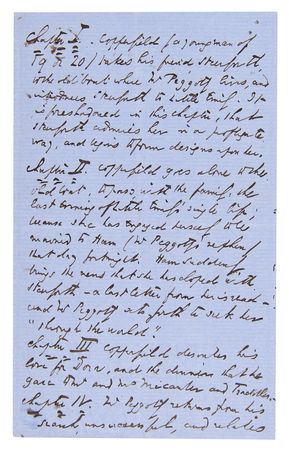 Chapter I. Copperfield (a young man of
19 or 20) takes his friend Steerforth
to the old boat where Mr Peggotty lives, and
introduces Steerforth to Little Em'ly. It
is foreshadowed in this chapter, that
Steerforth admires her in a profligate
way, and begins to form designs upon her.
Chapter II. Copperfield goes alone to the
old boat, to pass, with the family, the
last evening of Little Em'ly's single life;
because she has engaged herself to be
married to Ham (Mr Peggotty's nephew)
that day fortnight. Ham suddenly
brings the news that she has eloped with
Steerforth – a last letter from her is read –
and Mr Peggotty sets forth to seek her
"through the world."
Chapter III Copperfield describes his
love for Dora, and the dinner that he
gave Mr and Mrs Micawber and Traddles.
Chapter IV. Mr Peggotty returns from his
search, unsuccessful, and relates